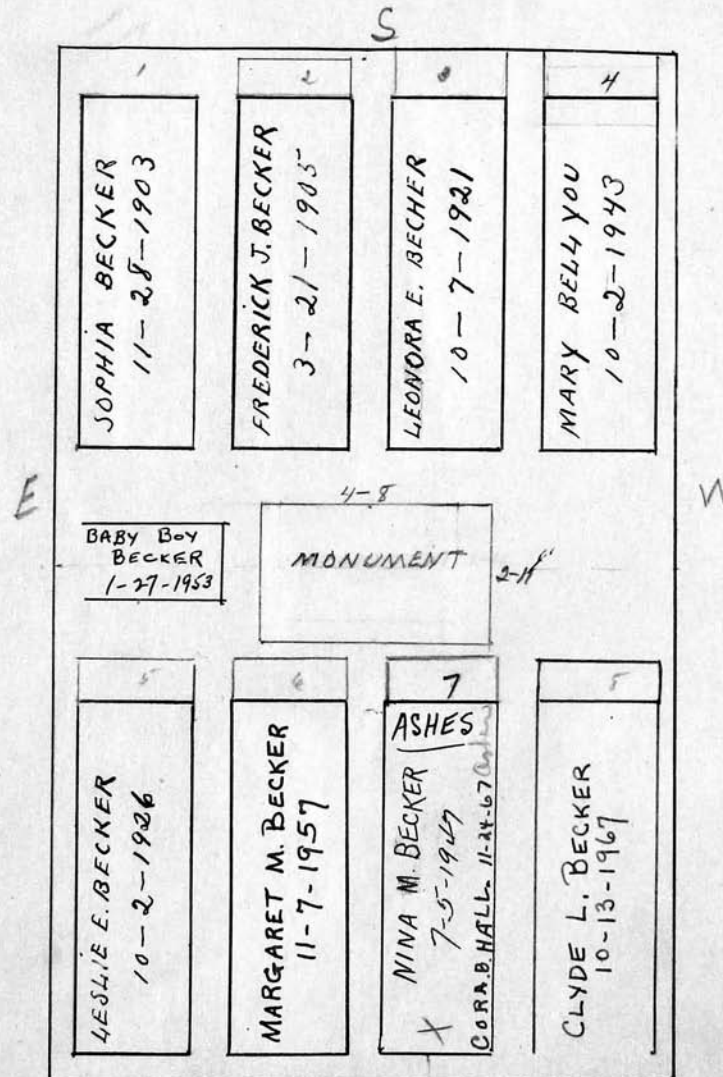 S
1
2
3
4
SOPHIA BECKER
11-28-1903
FREDERICK J. BECKER
3-21-1905
LEONORA E. BECHER
10-7-1921
MARY BELL YOU
10-2-1943
E
W
BABY BOY
BECKER
1-27-1953
4-8
MONUMENT
5
6
7
8
LESLIE E. BECKER
10-2-1926
MARGARET M. BECKER
11-7-1957
ASHES
NINA M. BECKER
7-5-1947
X
CORA B. HALL 11-24-67
CLYDE L. BECKER
10-13-1967